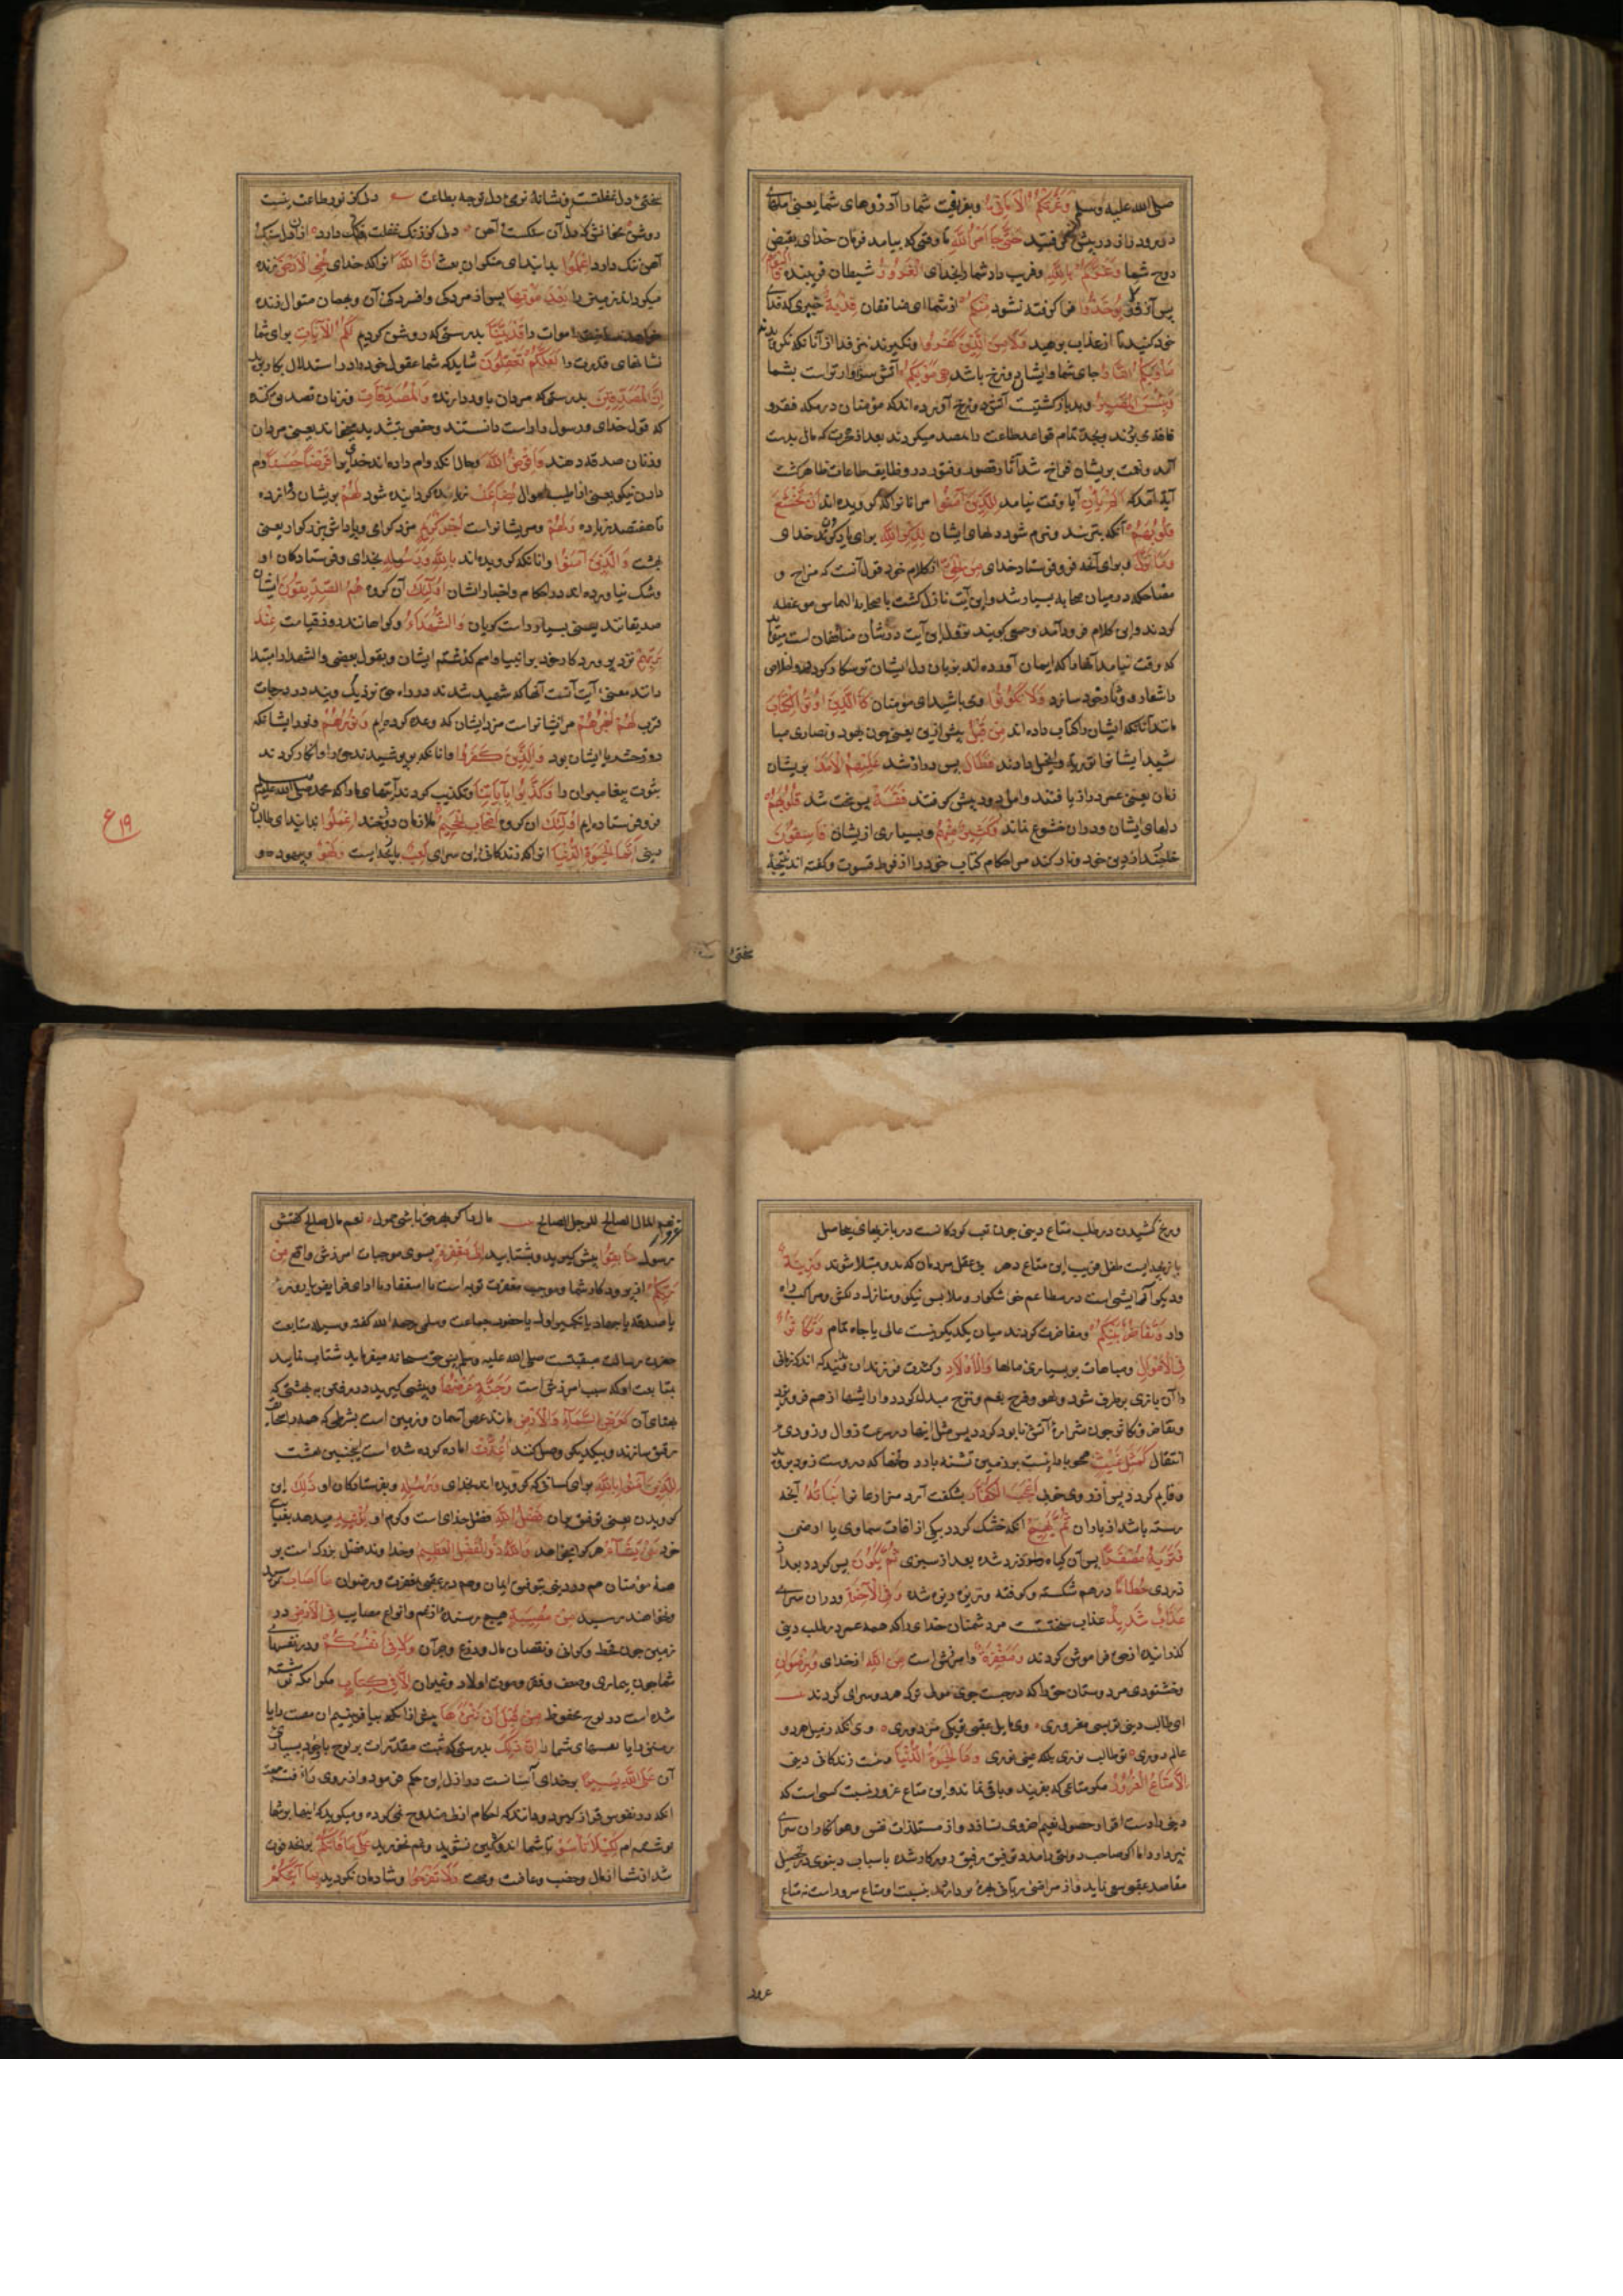 صلی الله علیه وسلم وَغَرَّتْكُمُ الْاَمَانِیُّ وبفریفت شما را آرزوهای شما یعنی املهای
دور ودراز در پیش گرفتید حَتّٰی جَاءَ اَمْرُ اللّٰهِ تا وقتی که بیامد فرمان خدای بقبض
روح شما وَغَرَّكُمْ بِاللّٰهِ وفریب داد شما را بخدای الْغَرُوْرُ شیطان فریبنده فَالْیَوْمَ
پس امروز لَا یُؤْخَذُ فرا گرفته نشود مِنْكُمْ از شما ای منافقان فِدْیَةٌ چیزی که فدای
خود کنید تا از عذاب برهید وَلَا مِنَ الَّذِیْنَ كَفَرُوْا ونگیرند نیز فدا از آنانکه نگرویدند
مَاْوٰیكُمُ النَّارُ جای شما وایشان دوزخ باشد هِیَ مَوْلٰیكُمْ آتش سزاوارتر است بشما
وَبِئْسَ الْمَصِیْرُ وبد بازگشتیست آتش دوزخ آورده اند که مؤمنان در مکه فقر و
فاقه می بودند وبجد تمام قواعد طاعت را میکردند بعد از هجرت که مال بدست
آمد ونعمت بریشان فراخ شد آثار قصور وفتور در وظایف طاعات ظاهر گشت
آیة آمد که اَلَمْ یَاْنِ آیا وقت نیامد لِلَّذِیْنَ اٰمَنُوْا مر آنانرا که گرویده اند اَنْ تَخْشَعَ
قُلُوْبُهُمْ آنکه بترسند ونرم شود دلهای ایشان لِذِكْرِ اللّٰهِ برای یاد کردن خدای
وَمَا نَزَلَ وبرای آنچه فرو فرستاد خدای مِنَ الْحَقِّ از کلام خود قولی آنست که مزاح و
مضاحکه در میان صحابه بسیار شد واین آیت نازل گشت یا صحابه التماس موعظه
کردند واین کلام فرود آمد وحی گویند نزول این آیت در شان منافقان است
که وقت نیامد آنها را که ایمان آورده اند بزبان دل ایشان
را شعار ودثار خود سازد وَلَا یَكُوْنُوْا ومی باشید ای مؤمنان كَالَّذِیْنَ اُوْتُوا الْكِتَابَ
مانند آنانکه ایشانرا کتاب داده اند مِنْ قَبْلُ پیش ازین یعنی چون یهود ونصاری
ایشانرا توریة وانجیل دادند فَطَالَ پس دراز شد عَلَیْهِمُ الْاَمَدُ بریشان
زمان یعنی عمر دراز یافتند وامل دور پیش گرفتند فَقَسَتْ پس سخت شد قُلُوْبُهُمْ
دلهای ایشان ودران خشوع نماند وَكَثِیْرٌ مِنْهُمْ وبسیاری ازیشان فَاسِقُوْنَ
خارجند از دین خود وتارکند مر احکام کتاب خود را از فرط قسوت وگفته اند نتیجه
سختی
سختی دل غفلتست ونشانه نرمی دل توجه بطاعت دلی کز نور طاعت نیست
روشن مخوانش دل که آن سنگست وآهن دلی کز زنگ غفلت رنگ دارد از آن دل سنگ
آهن ننگ دارد اِعْلَمُوْا بدانید ای منکران بعث اَنَّ اللّٰهَ آنکه خدای یُحْیِی الْاَرْضَ زنده
میگرداند زمین را بَعْدَ مَوْتِهَا پس از مردگی وافسردگی آن وبهمان منوال زنده
خواهد ساخت اموات را قَدْ بَیَّنَّا بدرستی که روشن کردیم لَكُمُ الْاٰیَاتِ برای شما
نشانهای قدرت را لَعَلَّكُمْ تَعْقِلُوْنَ شاید که شما عقول خود را در استدلال بکار برید
اِنَّ الْمُصَّدِّقِیْنَ بدرستی که مردان باور دارنده وَالْمُصَّدِّقَاتِ وزنان تصدیق کننده
که قول خدای ورسول را راست دانستند وحفص بتشدید میخواند یعنی مردان
وزنان صدقه دهنده وَاَقْرَضُوا اللّٰهَ وحال آنکه وام داده اند خدایرا قَرْضًا حَسَنًا وام
دادن نیکو یعنی از اطیب اموال یُضَاعَفُ زیاده گردانیده شود لَهُمْ بریشان
تا هفتصد زیاده وَلَهُمْ ومریشانراست اَجْرٌ كَرِیْمٌ مزد گرامی وپاداش بزرگوار یعنی
بهشت وَالَّذِیْنَ اٰمَنُوْا وآنانکه گرویده اند بِاللّٰهِ وَرُسُلِهِ بخدای وفرستادگان او
وشک نیاورده اند در احکام واخبار ایشان اُولٰئِكَ آن گروه هُمُ الصِّدِّیْقُوْنَ ایشان
صدیقانند یعنی بسیار راست گویان وَالشُّهَدَاءُ وگواهانند روز قیامت عِنْدَ
رَبِّهِمْ نزد پروردگار خود بر انبیا وامم گذشته ایشان وبقول بعضی والشهدا را ابتدا
دانند معنی آیت آنست آنها که شهید شدند در راه حق نزدیک ویند در درجات
قرب لَهُمْ اَجْرُهُمْ مر ایشانراست مزد ایشان که وعده کرده ام وَنُوْرُهُمْ ونور ایشانکه
روز حشر با ایشان بود وَالَّذِیْنَ كَفَرُوْا وآنانکه بپوشیدند حق را وانکار کردند
نبوت پیغامبران را وَكَذَّبُوْا بِاٰیَاتِنَا وتکذیب کردند آیتهای ما را که بمحمد صلی الله علیه وسلم
فرو فرستاده ایم اُولٰئِكَ آن گروه اَصْحَابُ الْجَحِیْمِ ملازمان دوزخند اِعْلَمُوْا بدانید ای طالبان
دینی اَنَّمَا الْحَیٰوةُ الدُّنْیَا آنکه زندگانی این سرای لَعِبٌ بازیچه ایست وَلَهْوٌ وبیهوده و
١٩ ع
ورنج کشیدن در طلب متاع دینی چون تعب کودکانست در بازیهای بیحاصل
بازیچه ایست طفل فریب این متاع دهر بی عقل مردمان که بدو مبتلا شوند وَزِیْنَةٌ
ودیگر آرایشی است در مطاعم خوشگوار وملابس نیکو ومنازل دلکش ومراکب راه
وار وَتَفَاخُرٌ بَیْنَكُمْ ومفاخرت کردنند میان یکدیگر بنسب عالی یا جاه تمام وَتَكَاثُرٌ
فِی الْاَمْوَالِ ومباهات بر بسیاری مالها وَالْاَوْلَادِ وکثرت فرزندان که اندک زمانی
را آن بازی برطرف شود ولهو وفرح بغم وترح مبدل گردد وآرایشها از هم فرو ریزد
وتفاخر وتکاثر چون شراره آتش نابود گردد پس مثل اینها در سرعت زوال وزودی
انتقال كَمَثَلِ غَیْثٍ همچو بارانیست بر زمین تشنه بارد وتخمها که دروست زود بروید
وقایم گردد پس از قوی خوب اَعْجَبَ الْكُفَّارَ بشگفت آرد مزارعانرا نَبَاتُهُ آنچه
رسته باشد از باران ثُمَّ یَهِیْجُ آنکه خشک گردد بیکی از افات سماوی یا ارضی
فَتَرٰیهُ مُصْفَرًّا پس آن گیاه را زرد شده بعد از سبزی ثُمَّ یَكُوْنُ پس گردد بعد از
زردی حُطَامًا درهم شکسته وکوفته وریزه ریزه شده وَفِی الْاٰخِرَةِ ودران سرای
عَذَابٌ شَدِیْدٌ عذاب سختست مر دشمنان خدای را که همه عمر در طلب دینی
گذرانیده از حق فراموش کردند وَمَغْفِرَةٌ وآمرزش است مِنَ اللّٰهِ از خدای وَرِضْوَانٌ
وخشنودی مر دوستان حق را که در جست جوی مولی ترک هر دو سرای گردند
ای طالب دینی تو بسی مغروری وی مایل عقبی تو یکی مزدوری وی آنکه ز میل هر دو
عالم دوری تو طالب نوری بلکه عین نوری وَمَا الْحَیٰوةُ الدُّنْیَا ونیست زندگانی دینی
اِلَّا مَتَاعُ الْغُرُوْرِ مگر متاعی که بفریبد وباقی نماند واین متاع غرور نسبت کسی است که
دینی را دست افزار حصول نعیم اخروی نسازد واز مستلذات نفس وهوا
نپردازد اما اگر صاحب دولتی را مدد توفیق رفیق روزگار شده باسباب دینوی در تحصیل
مقاصد عقبی سعی نماید واز مراضی ربانی بهره بردارد نسبت او متاع سرور است نه متاع
غرور
غرور نعم المال الصالح للرجل الصالح مال را گر بهر حق باشی حمول نعم مال صالح گفتش
رسول سَابِقُوْا پیش گیرید وبشتابید اِلٰی مَغْفِرَةٍ بسوی موجبات آمرزش واقع مِنْ
رَبِّكُمْ از پروردگار شما وموجب مغفرت توبه است یا استغفار یا ادای فرایض یا روزه
یا صدقه یا جهاد یا تکبیر اولی یا حضور جماعت وسلمی رحمه الله گفته وسیله متابعت
حضرت رسالت صلی الله علیه وسلم یعنی حق سبحانه میفرماید شتاب نمایید
بمتابعت او که سبب آمرزش است وَجَنَّةٍ عَرْضُهَا وپیشی گیرید در رفتن به بهشتی که
پهنای آن كَعَرْضِ السَّمَاءِ وَالْاَرْضِ مانند عرض آسمان وزمین است بشرطی که همه را صحایف
رقیق سازند وبیکدیگر وصل کنند اُعِدَّتْ آماده کرده شده است اینچنین بهشت
لِلَّذِیْنَ اٰمَنُوْا بِاللّٰهِ برای کسانی که گرویده اند بخدای وَرُسُلِهِ وبفرستادگان او ذٰلِكَ این
گرویدن یعنی توفیق بران فَضْلُ اللّٰهِ فضل خدای است وکرم او یُؤْتِیْهِ میدهد
خود مَنْ یَشَاءُ هر کرا خواهد وَاللّٰهُ ذُو الْفَضْلِ الْعَظِیْمِ وخداوند فضل بزرگ است بر
همه مؤمنان هم در دینی بتوفیق ایمان وهم در عقبی بمغفرت ورضوان مَا اَصَابَ نرسید
ونخواهد رسید مِنْ مُصِیْبَةٍ هیچ رسنده از غم وانواع مصایب فِی الْاَرْضِ در
زمین چون قحط وگرانی ونقصان مال وزرع وجز آن وَلَا فِیْ اَنْفُسِكُمْ ودر نفسهای
شما چون بیماری وضعف وفقر وموت اولاد وغیر آن اِلَّا فِیْ كِتَابٍ مگر آنکه نوشته
شده است در لوح محفوظ مِنْ قَبْلِ اَنْ نَبْرَاَهَا پیش از آنکه بیافرینیم آن مصیبت را یا
زمین را یا نفسهای شما را اِنَّ ذٰلِكَ بدرستی که ثبت مقدرات بر لوح باوجود بسیاری
آن عَلَی اللّٰهِ یَسِیْرٌ بر خدای آسانست در ازل این حکم فرمود واز روی
آنکه در نفوس قرار گیرد وبدانند که احکام ازلی مندرج نمی کرده ومیگوید که اینها بر شما
نوشته ام لِكَیْلَا تَاْسَوْا تا شما اندوهگین نشوید وغم نخورید عَلٰی مَا فَاتَكُمْ بر آنچه فوت
شد از شما از مال وخصب وعافیت وصحت وَلَا تَفْرَحُوْا وشادمان نگردید بِمَا اٰتٰیكُمْ